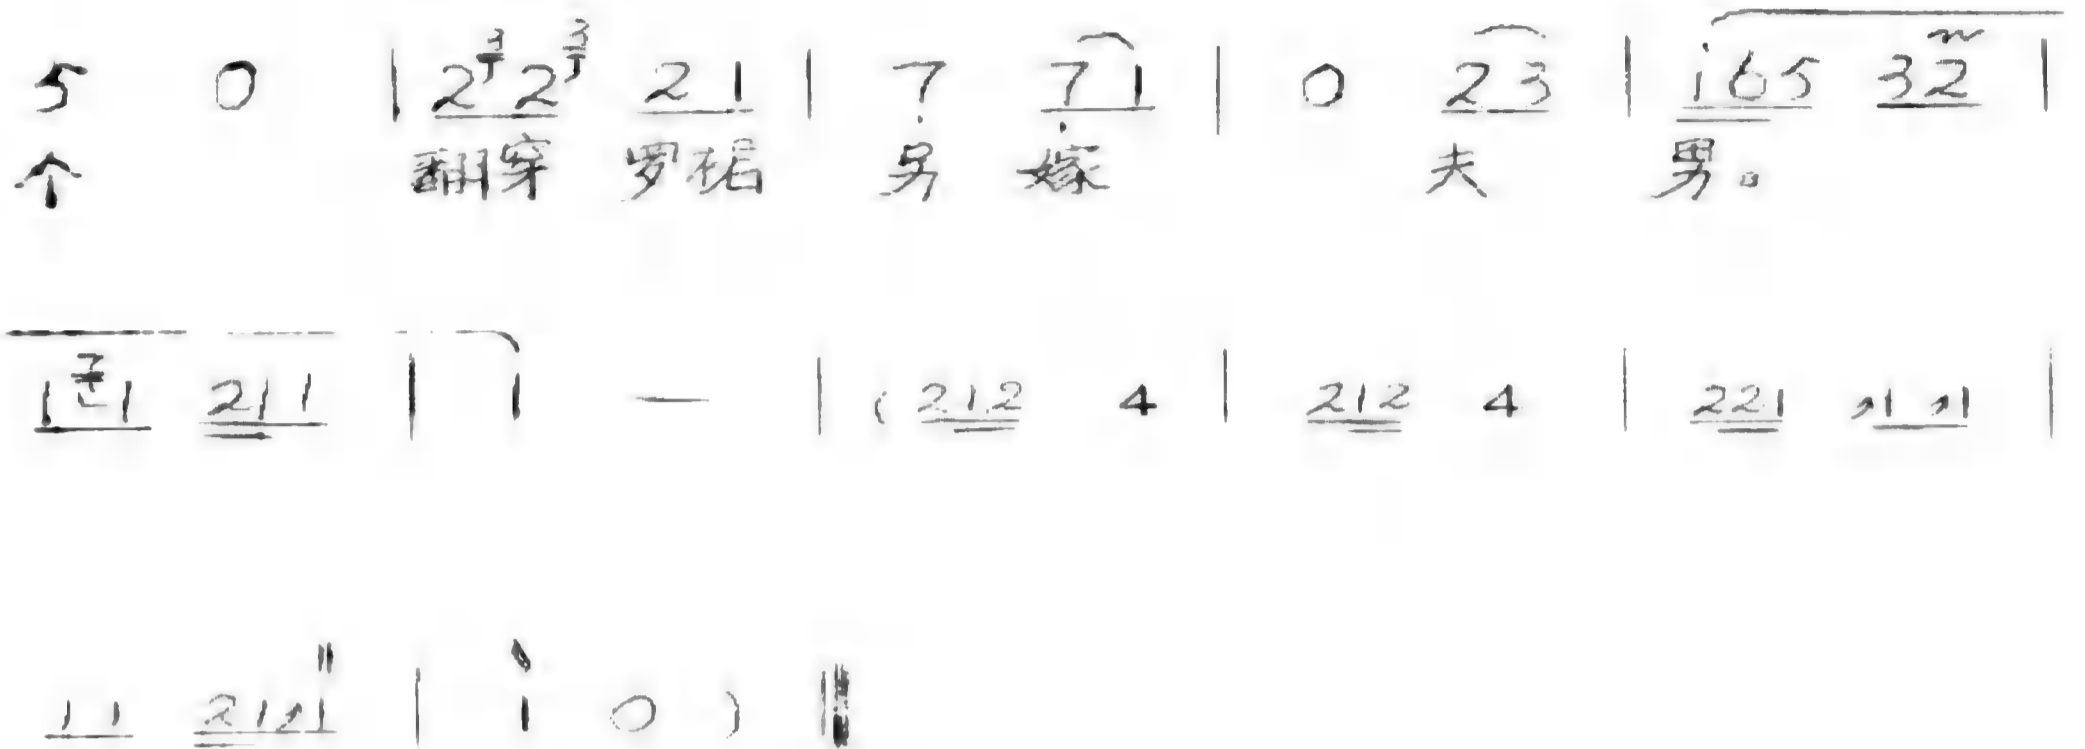 5 0 | 2 2 2 1 | 7 7 1 | 0 2 3 | i 6 5 3 2 |
个 翻穿 罗裙 另 嫁 夫 男。
1 1 2 1 1 | 1 — | ( 2 1 2 4 | 2 1 2 4 | 2 2 1 1 1 |
1 1 2 1 1 | i 0 ) ‖